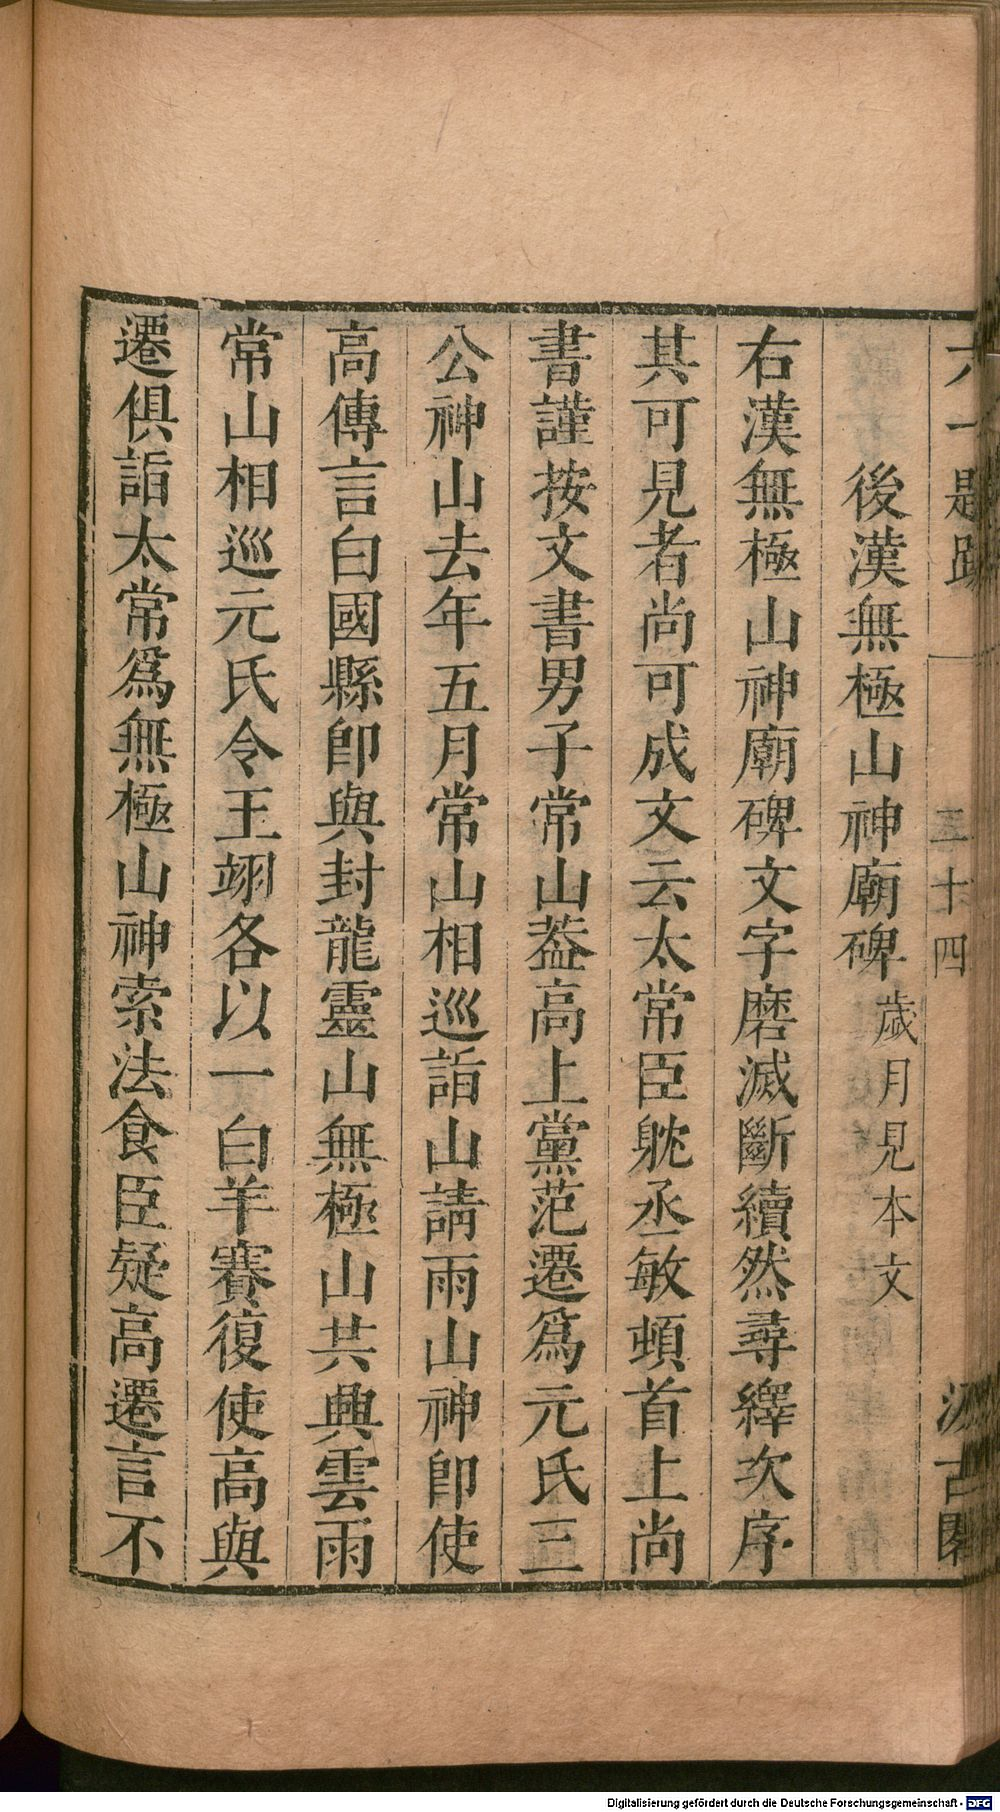 六一題跋 一 三十四 汲古閣
後漢無極山神廟碑 歲月見本文
右漢無極山神廟碑文字磨滅斷續然尋繹次序
其可見者尚可成文云太常臣躭丞敏頓首上尚
書謹按文書男子常山葢高上黨范遷爲元氏三
公神山去年五月常山相巡詣山請雨山神卽使
高傳言白國縣卽與封龍靈山無極山共興雲雨
常山相巡元氏令王翊各以一白羊賽復使高與
遷俱詣太常爲無極山神索法食臣疑高遷言不
Digitalisierung gefördert durch die Deutsche Forschungsgemeinschaft - DFG